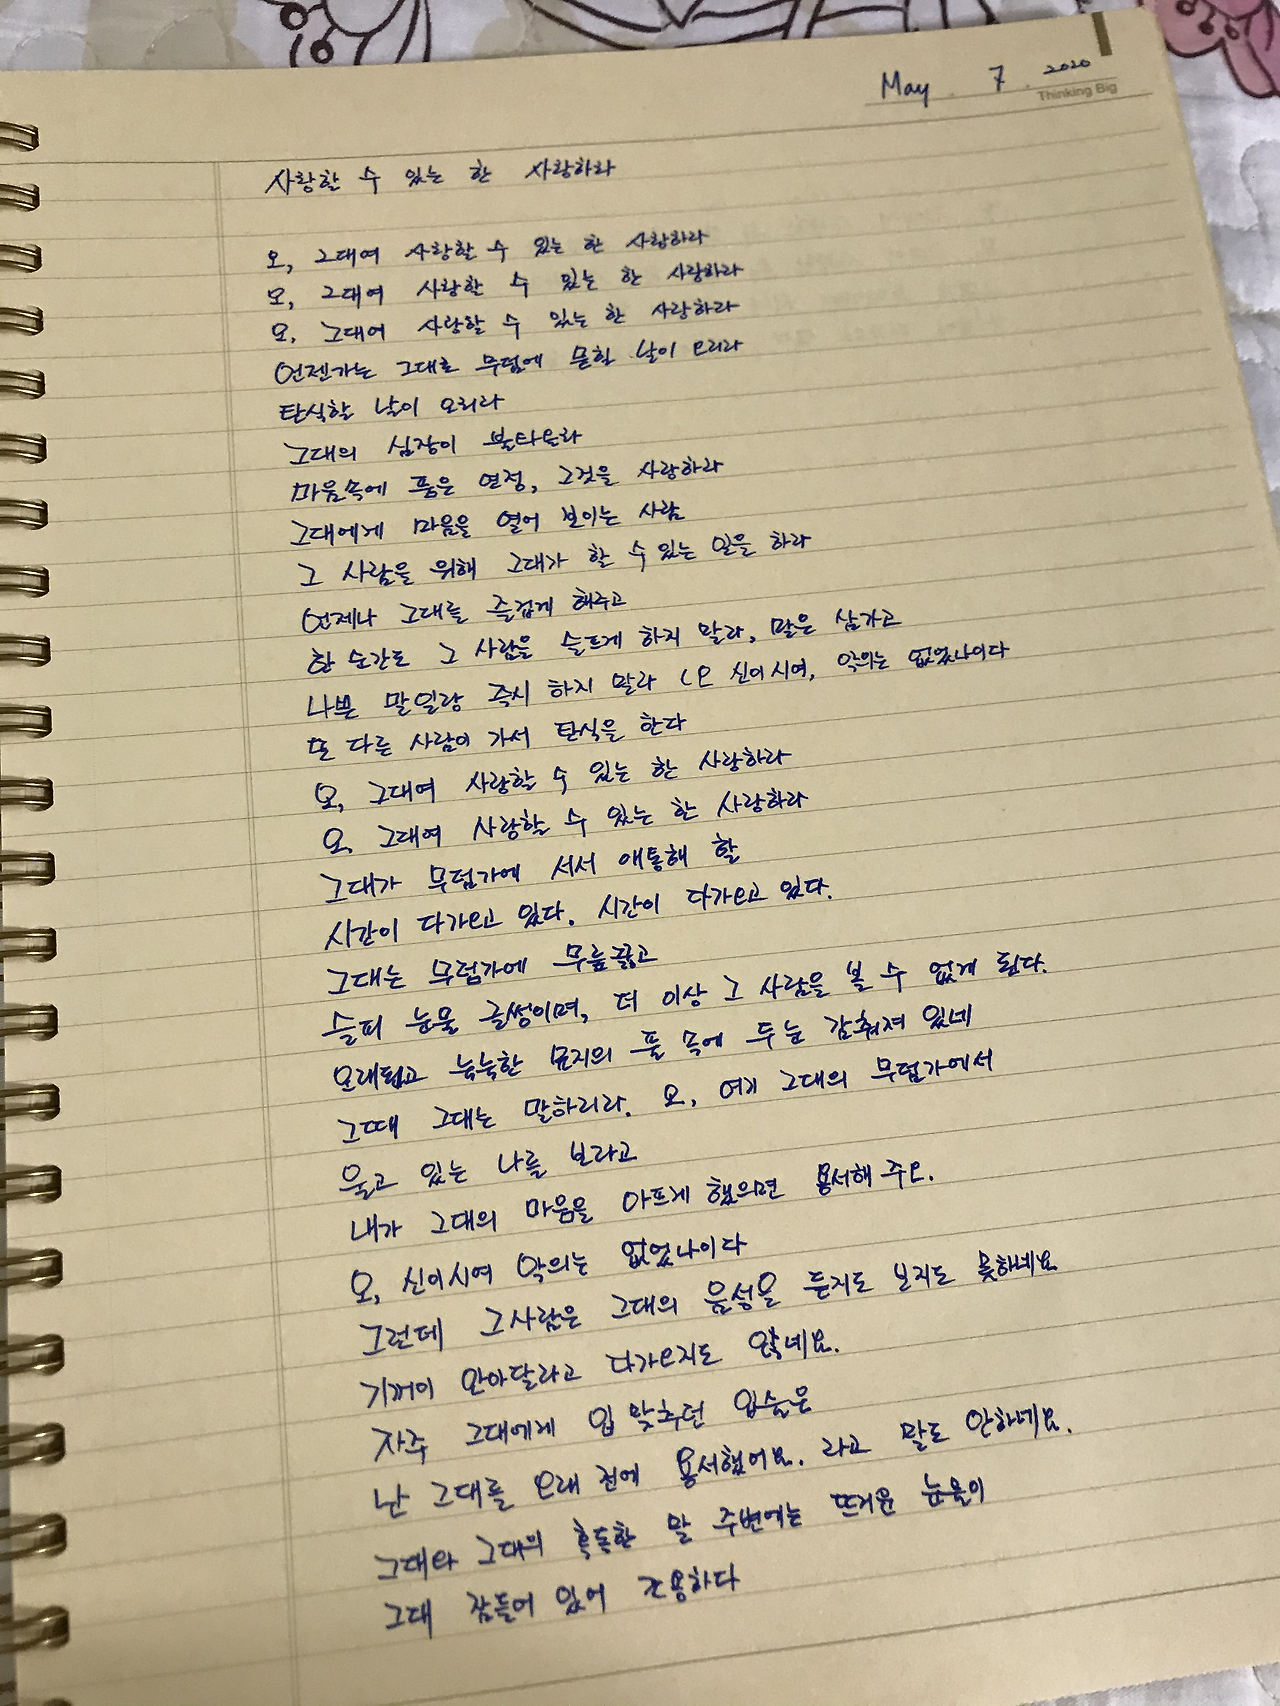 May. 7. 2020
Thinking Big
사랑할 수 있는 한 사랑하라
오, 그대여 사랑할 수 있는 한 사랑하라
오, 그대여 사랑할 수 있는 한 사랑하라
오, 그대여 사랑할 수 있는 한 사랑하라
언젠가는 그대로 무덤에 묻힐 날이 오리라
탄식할 날이 오리라
그대의 심장이 불타올라
마음속에 품은 연정, 그것을 사랑하라
그대에게 마음을 열어 보이는 사람
그 사람을 위해 그대가 할 수 있는 일을 하라
언제나 그대를 즐겁게 해주고
한 순간도 그 사람을 슬프게 하지 말라, 말은 삼가고
나쁜 말일랑 즉시 하지 말라 (오 신이시여, 악의는 없었나이다
또 다른 사람이 가서 탄식을 한다
오, 그대여 사랑할 수 있는 한 사랑하라
오, 그대여 사랑할 수 있는 한 사랑하라
그대가 무덤가에 서서 애통해 할
시간이 다가오고 있다. 시간이 다가오고 있다.
그대는 무덤가에 무릎꿇고
슬피 눈물 글썽이며, 더 이상 그 사람을 볼 수 없게 된다.
오래되고 눅눅한 묘지의 풀 속에 두 눈 감춰져 있네
그때 그대는 말하리라. 오, 여기 그대의 무덤가에서
울고 있는 나를 보라고
내가 그대의 마음을 아프게 했으면 용서해 주오.
오, 신이시여 악의는 없었나이다
그런데 그사람은 그대의 음성을 듣지도 보지도 못하네요
기꺼이 안아달라고 다가오지도 않네요.
자주 그대에게 입 맞추던 입술은
난 그대를 오래 전에 용서했어요. 라고 말도 안하네요.
그대와 그대의 혹독한 말 주변에는 뜨거운 눈물이
그대 잠들어 있어 조용하다